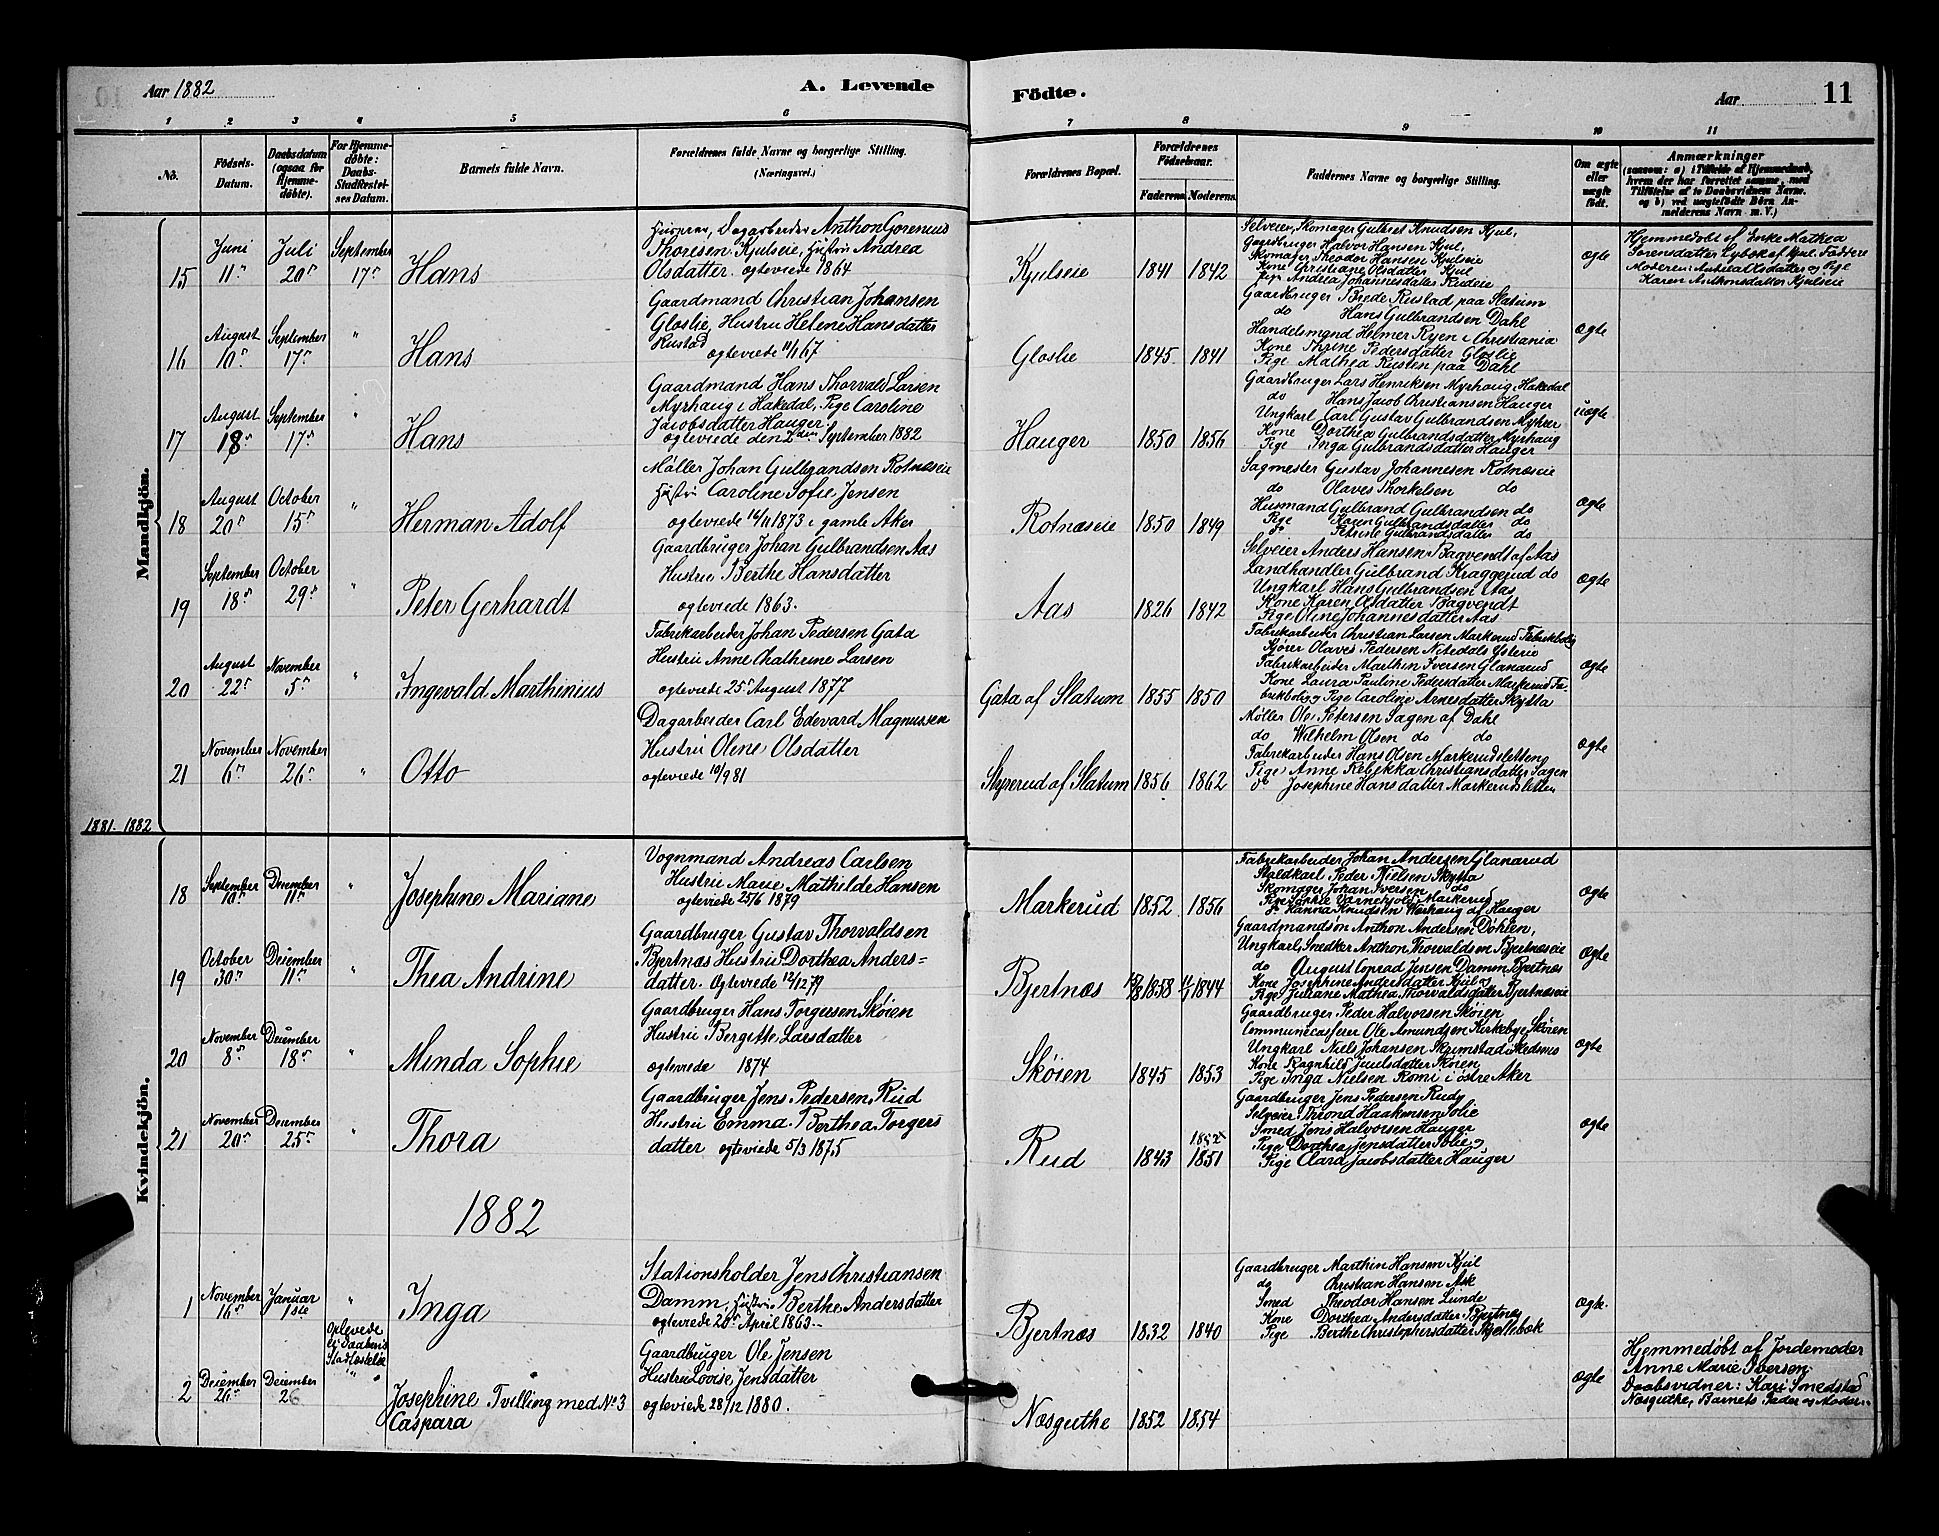 Aar 1882
A. Levende
Födte.
Aar
11
1 2 3 4 5 6 7 8 9 10 11
No.
Födsels-Datum.
Daabsdatum (ogsaa for Hjemmedöbte).
For Hjemmedöbte: Daabs-Stadfæstelses Datum.
Barnets fulde Navn.
Forældrenes fulde Navne og borgerlige Stilling. (Næringsvei.)
Forældrenes Bopæl.
Forældrenes Födselsaar.
Faderens.
Moderens.
Faddernes Navne og borgerlige Stilling.
Om ægte eller uægte födt.
Anmærkninger
(saasom: a) i Tilfælde af Hjemmedaab, hvem der har forrettet samme, med Tilföielse af to Daabsvidners Navne. og b) ved uægtefödte Börn Anmelderens Navn m. V.)
Mandkjön.
15
Juni 11
Juli 20
September 17
Hans
Dagarbeider Anthon Gorenius
Thoresen Kjulseie, Hustru Andrea
Olsdatter. ægteviede 1864
Kjulseie
1841
1842
Selveier, Skomager Gulbret Knudsen Kjul,
Gaardbruger Halvor Hansen Kjul,
Skomager Theodor Hansen Kjulseie
Kone Christiane Olsdatter Kjul
Pige Andrea Johannesdatter Rudeie
ægte
Hjemmedöbt af Enke Mathea
Sorensdatter Lybæk af Kjul. Faddere
Moderen: Olsdatter og Pige
Karen Anthonsdatter Kjulseie
16
August 10
September 17
"
Hans
Gaardmand Christian Johansen
Gloslie, Hustru Helene Hansdatter
Rustad
ægteviede 11/1 67
Gloslie
1845
1841
Gaardbruger Brede Rustad paa Slatum
do Hans Gulbrandsen Dahl
Handelsmand Helmer Ryen i Christiania
Kone Thrine Pedersdatter Gloslie
Pige Mathea Rusten paa Dahl
ægte
17
August 18
September 17
"
Hans
Gaardmand Hans Thorvald Larsen
Myrhaug i Hakedal, Pige Caroline
Jacobsdatter Hauger
ægteviede den 2den September 1882
Hauger
1850
1856
Gaardbruger Lars Henriksen Myrhaug Hakedal
do Hans Jacob Christiansen Hauger
Ungkarl Carl Gustav Gulbrandsen Myhrer
Kone Dorthea Gulbrandsdatter Myrhaug
Pige Inga Gulbrandsdatter Hauger
uægte
18
August 20
October 15
"
Herman Adolf
Møller Johan Gulbrandsen Rotnæseie
Hustru Caroline Sofie Jensen
ægteviede 16/11 1873 i gamle Aker
Rotnæseie
1850
1849
Sagmester Gustav Johannesen Rotnæseie
do Olaves Thorkelsen do
Husmand Gulbrand Gulbrandsen do
Pige Karen Gulbrandsdatter do
do Petrine Gulbrandsdatter do
ægte
19
September 18
October 29
"
Peter Gerhardt
Gaardbruger Johan Gulbrandsen Aas
Hustru Berthe Hansdatter
ægteviede 1863.
Aas
1826
1842
Selveier Anders Hansen Bagvendt af Aas
Landhandler Gulbrand Kraggerud do
Ungkarl Hans Gulbrandsen Aas
Kone Karen Olsdatter Bagvendt
Pige Oline Johannesdatter Aas
ægte
20
August 22
November 5
"
Ingevald Marthinius
Fabrikarbeider Johan Pedersen Gata
Hustru Anne Chathrine Larsen
ægteviede 25 August 1877
Gata af Slatum
1855
1850
Fabrikarbeider Christian Larsen Markerud Fabrikbolig
Kjører Olaves Pedersen Nitedals Ysterie
Fabrikarbeider Marthin Iversen Glanarud
Kone Laura Pauline Pedersdatter Markerud Fa-
brikbolig, Pige Caroline Arnesdatter Skytta
ægte
21
November 6
November 26
"
Otto
Dagarbeider Carl Edevard Magnussen
Hustru Olene Olsdatter
ægteviede 10/9 81
Styrerud af Slatum
1856
1862
Møller Ole Petersen Sagen af Dahl
do Wilhelm Olsen do do
Fabrikarbeider Hans Olsen Markerudsletten
Pige Anne Rebekka Christiansdatter Sagen
do Josephine Hansdatter Markerudsletten
ægte
1881. 1882
Kvindekjön.
18
September 10
December 11
"
Josephine Mariane
Vognmand Andreas Carlsen
Hustru Marie Mathilde Hansen
ægteviede 25/6 1879
Markerud
1852
1856
Fabrikarbeider Johan Andersen Glanarud
Staldkarl Peder Nielsen Skytta
Skomager Johan Iversen do
Pige Markerud
do Hanna Knudsen Werhaug af Hauger
ægte
19
October 30
December 11
"
Thea Andrine
Gaardbruger Gustav Thorvaldsen
Bjertnæs Hustru Dorthea Anders=
datter. Ægteviede 12/12 79
Bjertnæs
1858
1844
Gaardmandsøn Anthon Andersen Döhlen,
Ungkarl, Snedker Anthon Thorvaldsen Bjertnæseie
do August Conrad Jensen Damm, Bjertnæs
Kone Josephine Andersdatter Kjul
Pige Juliane Mathea Thorvaldsdatter Bjertnæseie
ægte
20
November 8
December 18
"
Minda Sophie
Gaardbruger Hans Torgersen Skøien
Hustru Bergitte Larsdatter
ægteviede 1874
Skøien
1845
1853
Gaardbruger Peder Halvorsen Skøien
Communecasserer Ole Amundsen Kirkebye, Skøien
Ungkarl Niels Johansen Skjimstad i Skedsmo
Kone Ragnhild Juulsdatter Skøien
Pige Inga Nielsen Romi i østre Aker
ægte
21
November 20
December 25
"
Thora
Gaardbruger Jens Pedersen Rud
Hustru Emma Berthea Torgers
datter ægteviede 5/3 1875
Rud
1843
1852
1851
Gaardbruger Jens Pedersen Rud
Selveier Trond Haakensen Solie
Smed Jens Halvorsen Hauger
Pige Dorthea Jensdatter Solie
Pige Clara Jacobsdatter Hauger
ægte
1882
1
November 16
Januar 1ste
"
Inga
Stationsholder Jens Christiansen
Damm, Hustru Berthe Andersdatter
ægteviede 20 April 1863.
Bjertnæs
1832
1840
Gaardbruger Marthin Hansen Kjul
do Christian Hansen Ask
Smed Theodor Hansen Lunde
Kone Dorthea Andersdatter Bjertnæs
Pige Berthe Christophersdatter Kjellebæk
ægte.
2
December 26
December 26
Oplevede ei Daabens Stadfæstelse
Josephine Tvilling med No 3
Caspara
Gaardbruger Ole Jensen
Hustru Lovise Jensdatter
ægteviede 28/12 1880.
Næsguthe
1852
1854
ægte
Hjemmedøbt af Jordemoder
Anne Marie Iversen
Daabsvidner: Kari Smedstad
Næsguthe, Barnets Fader og Moder